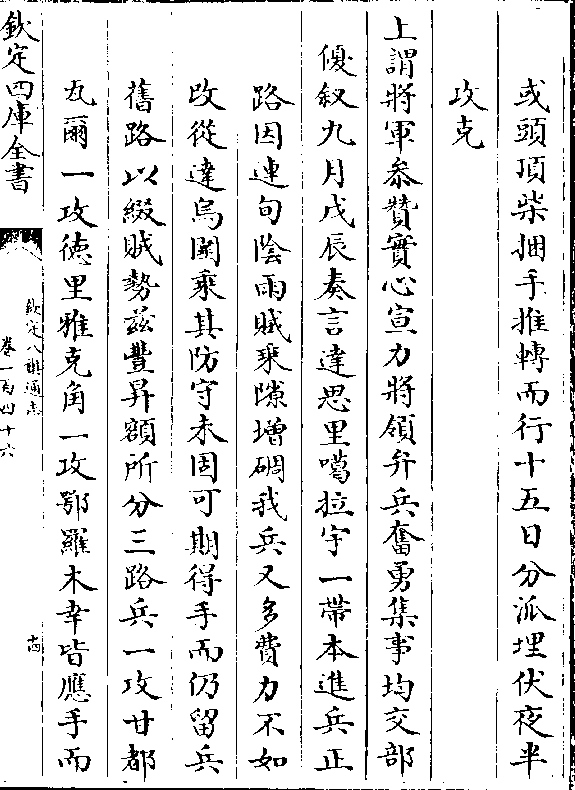 或頭頂柴捆手推轉而行十五日分派埋伏夜半
攻克
上謂將軍叅贊實心宣力將領弁兵奮勇集事均交部
優叙九月戊辰奏言達思里噶拉宇一帶本進兵正
路因連旬陰雨賊乘隙增碉我兵又多費力不如
改從達烏闗乘其防守未固可期得手而仍留兵
舊路以綴賊勢兹豐昇額所分三路兵一攻甘都
瓦爾一攻徳里雅克角一攻鄂羅木幸皆應手而
欽定四庫全書
欽定八旗通志
卷一百四十六
十四